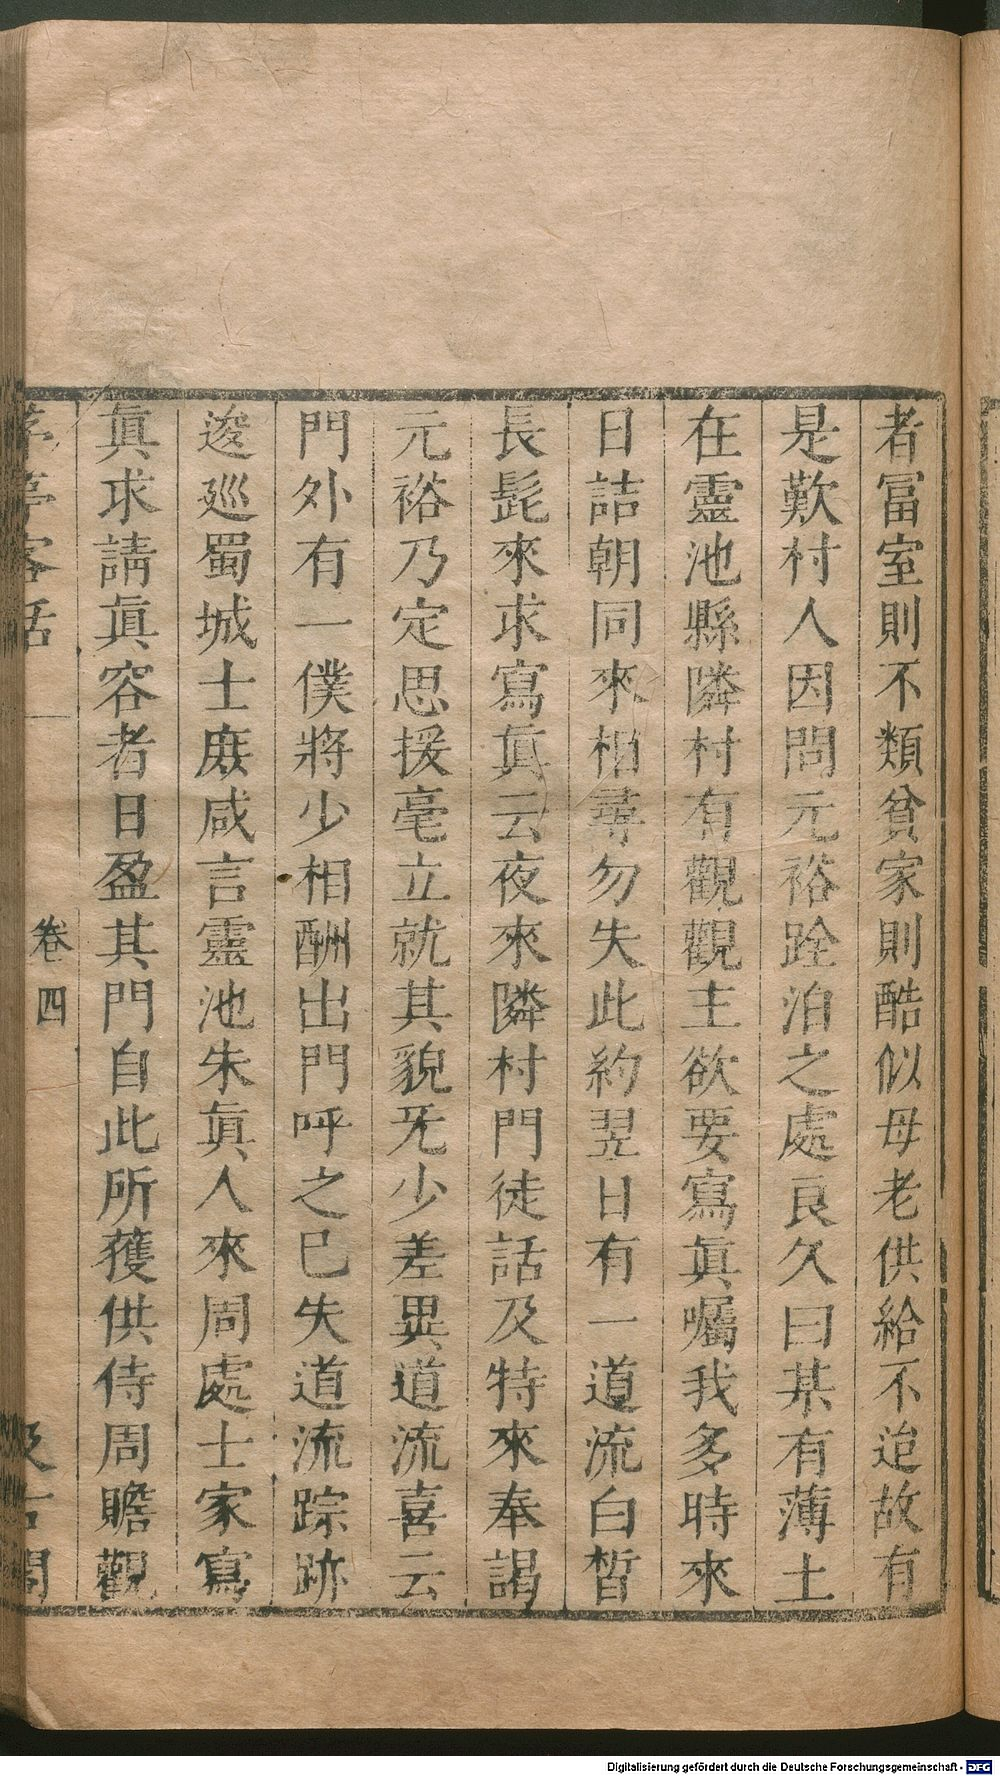 者冨室則不類貧家則酷似母老供給不迨故有
是歎村人因問元裕跧泊之處良久曰某有薄土
在靈池縣隣村有觀觀主欲要寫眞囑我多時來
日詰朝同來相尋勿失此約翌日有一道流白皙
長髭來求寫眞云夜來隣村門徒話及特來奉謁
元裕乃定思援毫立就其貌旡少差異道流喜云
門外有一僕將少相酬出門呼之已失道流踪跡
逡廵蜀城士庶咸言靈池朱眞人來周處士家寫
眞求請眞容者日盈其門自此所獲供侍周贍觀
茅亭客話
卷四
汲古閣
Digitalisierung gefördert durch die Deutsche Forschungsgemeinschaft - DFG